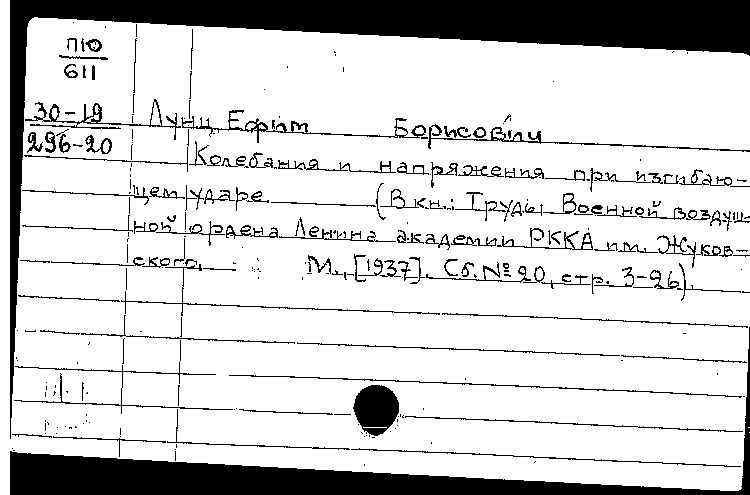 П10
611
30-19
296-20
Лунц, Ефим Борисович
Колебания и напряжения при изгибаю-
щем ударе. (В кн.: Труды Военной воздуш-
ной ордена Ленина академии РККА им. Жуков-
ского, М., [1937]. Сб. № 20, стр. 3-26).